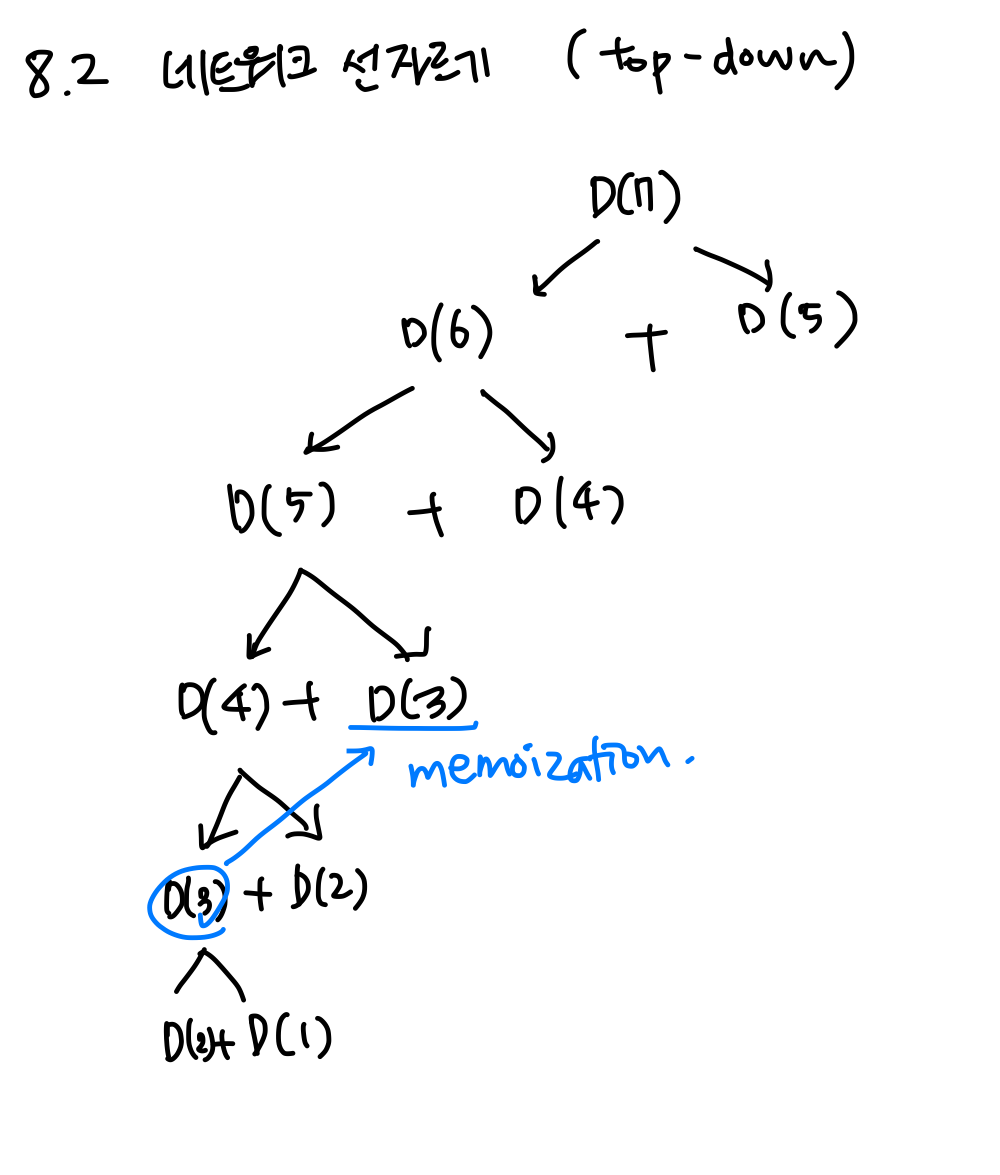 8.2 네트워크 선자르기 (top-down)
D(7)
D(6) + D(5)
D(5) + D(4)
D(4) + D(3)
memoization.
D(3) + D(2)
D(2) + D(1)